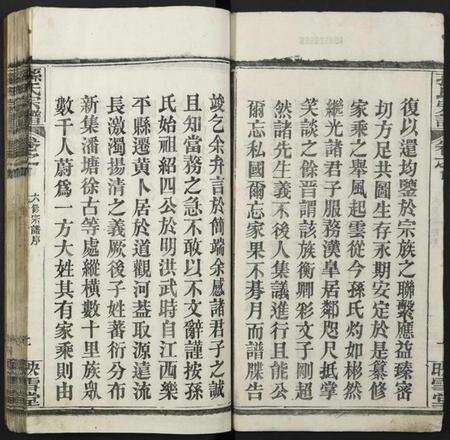 復以還均鑒於宗族之聯繫應益臻密
切方足共圖生存永期安定於是纂修
家乘之舉風起雲從今孫氏灼如彬然
繼光諸君子服務漢皐居鄰咫尺抵掌
笑談之餘晋謂該族衡卿彩文子剛超
然諸先生義不後人集議進行且能公
爾忘私國爾忘家果不朞月而譜牒告
竣乞余弁言於簡端余感諸君子之誠
且知當務之急不敢以不文辭謹按孫
氏始祖紹四公於明洪武時自江西樂
平縣遷黄卜居於道觀河蓋取源遠流
長激濁揚清之義厥後子姓蕃衍分布
新集潘塘徐古等處縱橫數十里族衆
數千人蔚爲一方大姓其有家乘則由
孫氏宗譜
卷之
六修宗譜序
一
映雪堂